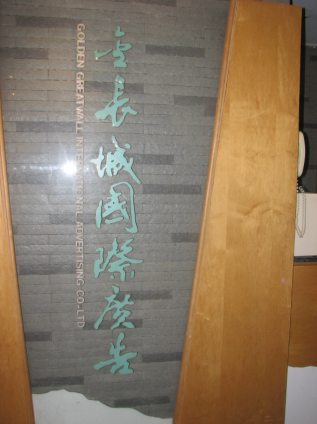 金長城國際廣告
GOLDEN GREATWALL INTERNATIONAL ADVERTISING CO.,LTD